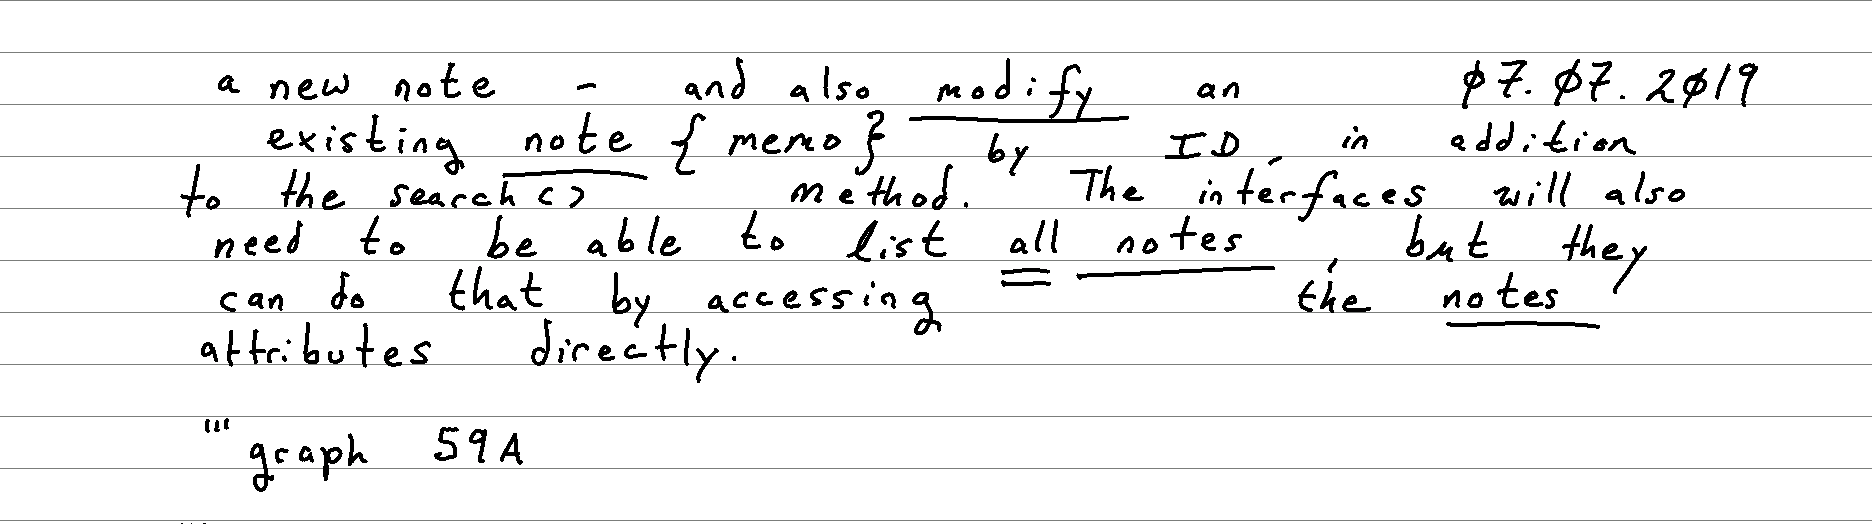 a new note - and also modify an 07.07.2019
existing note {memo} by ID, in addition
to the search() method. The interfaces will also
need to be able to list all notes, but they
can do that by accessing the notes
attributes directly.
''' graph 59A